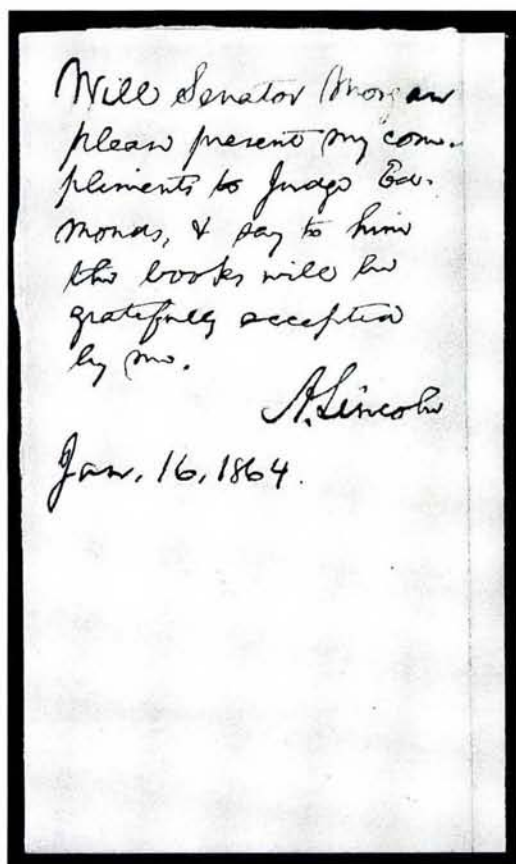 Will Senator Morgan
please present my com-
pliments to Judge Ed-
monds, & say to him
the books will be
gratefully accepted
by me.
A. Lincoln
Jan. 16, 1864.